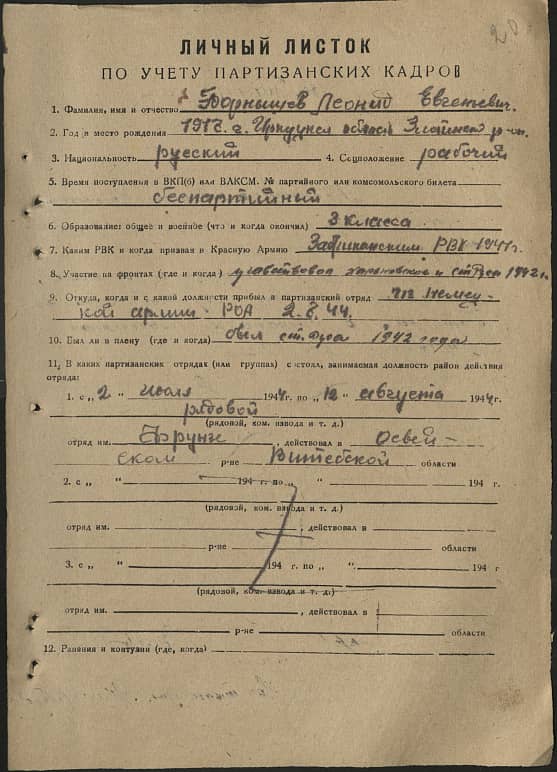 20
ЛИЧНЫЙ ЛИСТОК
ПО УЧЕТУ ПАРТИЗАНСКИХ КАДРОВ
1. Фамилия, имя и отчество Леоний Евгеньевич.
2. Год и место рождения 1917 г. область
3. Национальность русский 4. Соцположение рабочий
5. Время поступления в ВКП(б) или ВЛКСМ. № партийного или комсомольского билета
беспартийный
6. Образование: общее и военное (что и когда окончил) 3 класса
7. Каким РВК и когда призван в Красную Армию РВК 1941 г.
8. Участие на фронтах (где и когда) участвовал 1942 г.
9. Откуда, когда и с какой должности прибыл в партизанский отряд из немец-
кой армии РОА 2.6.44.
10. Был ли в плену (где и когда) был 1942 года
11. В каких партизанских отрядах (или группах) с и по какое, занимаемая должность район действия
отряда:
1. с „ 2 “ июля 1944 г. по „ 12 “ августа 1944 г.
рядовой
(рядовой, ком. взвода и т. д.)
отряд им. Фрунзе , действовал в Освей-
ском р-не Витебской области
2. с „ “ 194 г. по „ “ 194 г.
(рядовой, ком. взвода и т. д.)
отряд им. , действовал в
р-не области
3. с „ “ 194 г. по „ “ 194 г
(рядовой, ком. взвода и т. д.)
отряд им. , действовал в
р-не области
12. Ранения и контузии (где, когда)